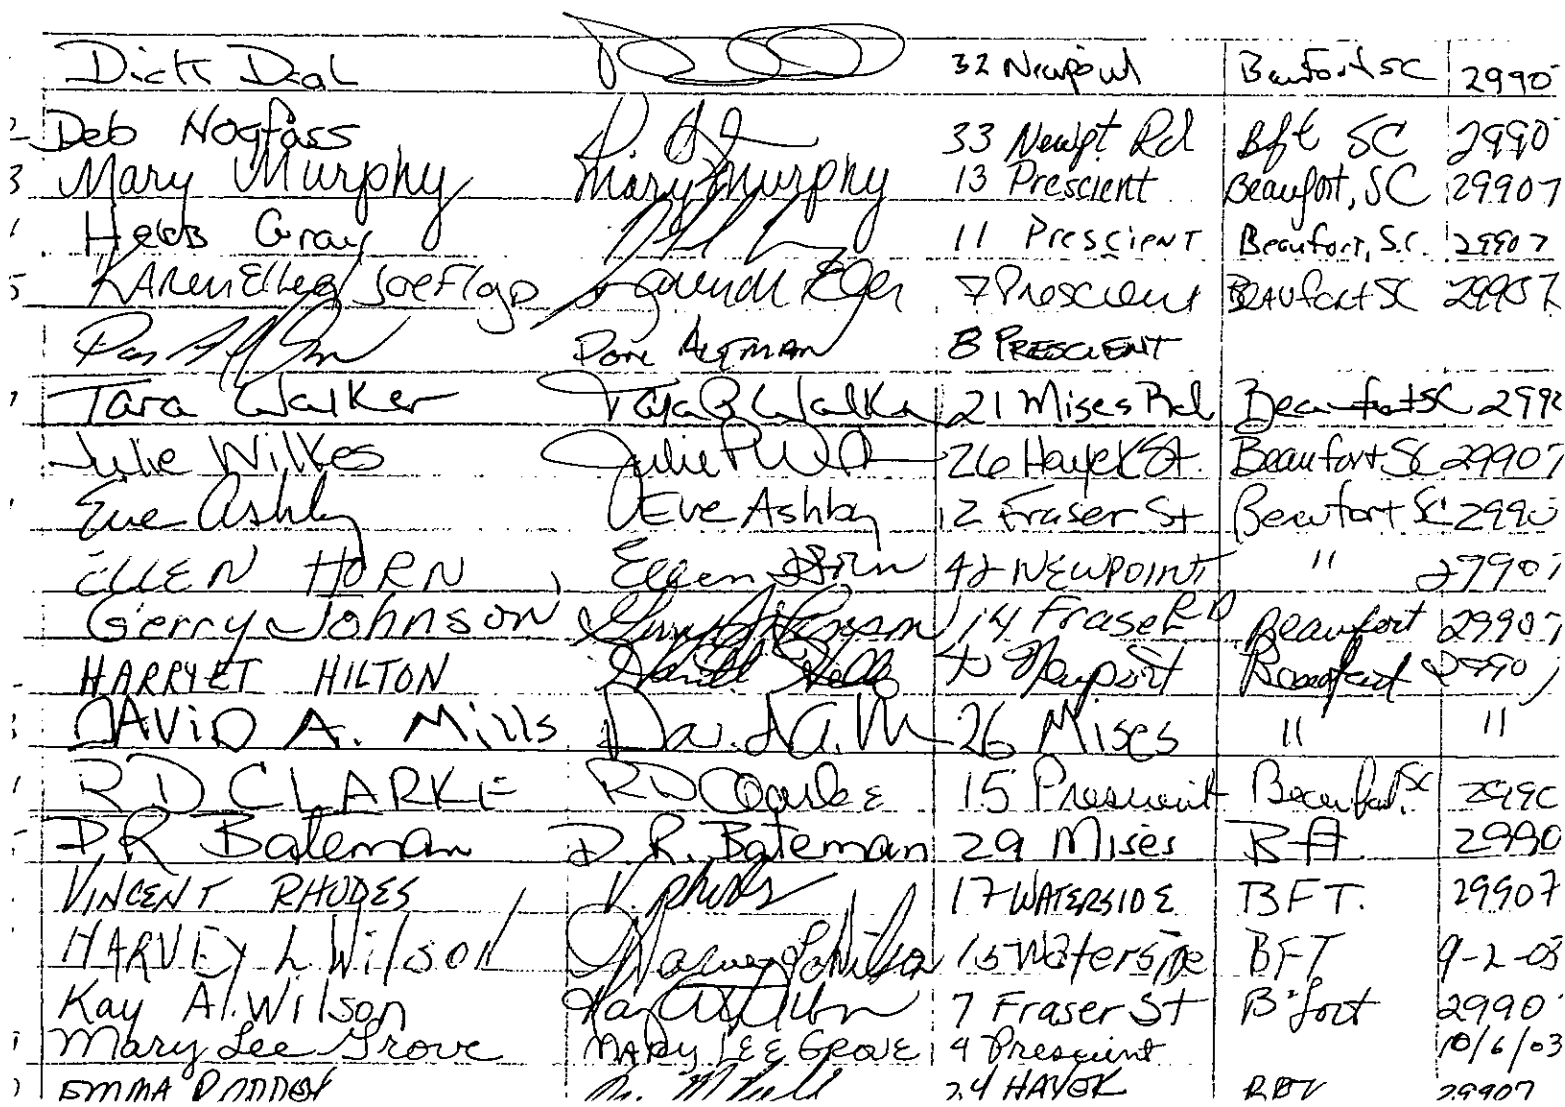 Dick Dial 32 Newpoint Beaufort SC 2990
2 Deb Nogfass 33 Newpt. Rd Bft SC 2990
3 Mary Murphy Mary Murphy 13 Prescient Beaufort, SC 29907
Herb Gray 11 Prescient Beaufort, S.C. 29907
5 Joe Floyd 7 Prescient Beaufort SC 29907
8 Prescient
Tara Walker Tara B Walker 21 Mises Rd Beaufort SC 2990
Julie Wilkes Julie 26 Hayek St. Beaufort SC 29907
Eve Ashby Eve Ashby 12 Fraser St Beaufort SC 2990
ELLEN HORN Ellen Horn 42 NEWPOINT " 29907
Gerry Johnson 14 Fraser RD Beaufort 29907
HARRYET HILTON Beaufort 29907
DAVID A. Mills 26 Mises " "
RD CLARKE RD Clarke 15 Prescient Beaufort, SC 2990
D.R Bateman D.R. Bateman 29 Mises Bft 2990
VINCENT RHODES V. Rhodes 17 WATERSIDE BFT. 29907
HARVEY L Wilson Harvey L Wilson 15 Waterside BFT 9-2-03
Kay A. Wilson Kay A Wilson 7 Fraser St B'fort 2990
Mary Lee Grove MARY LEE GROVE 4 Prescient 10/6/03
EMMA 24 HAYEK 29907